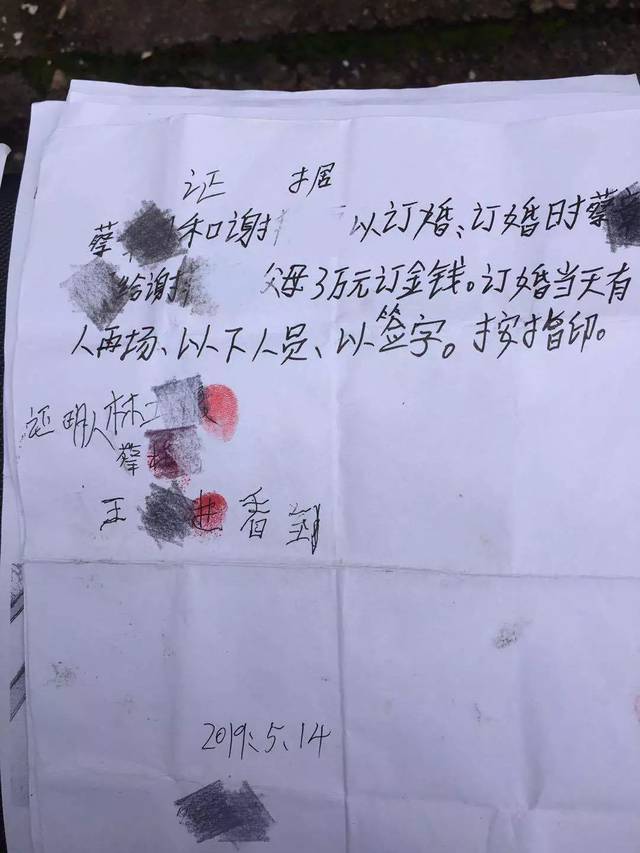 证 据
蔡 和谢 以订婚、订婚时蔡
给谢 父母3万元订金钱。订婚当天有
人再场、以下人员、以签字。按指印。
证明人林
蔡
王 进香到
2019.5.14